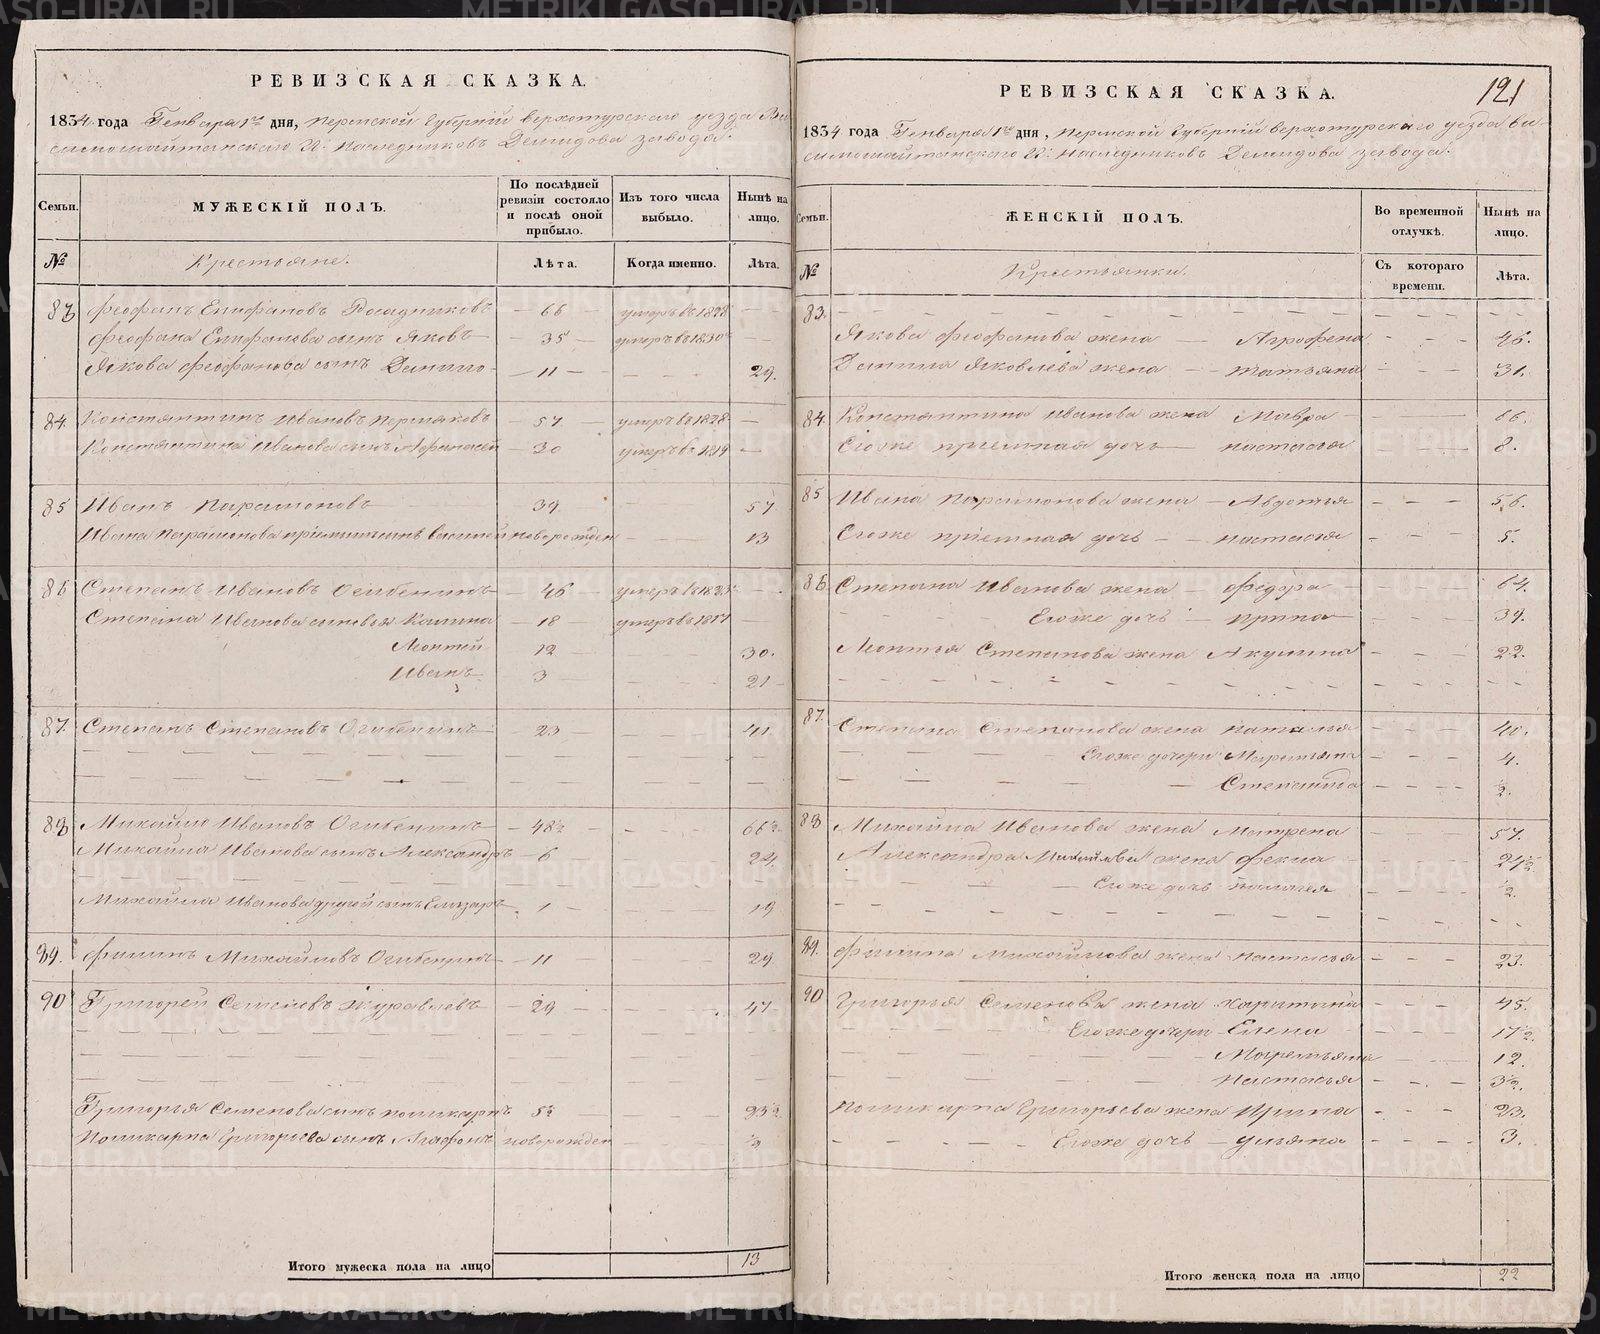 РЕВИЗСКАЯ СКАЗКА.
1834 года Генваря 1го дня, Пермской Губернiи верхотурскаго уезда Ви
симошайтанскаго Н: Наследниковъ Демидова завода.
Семьи.
МУЖЕСКIЙ ПОЛЪ.
По послѣдней ревизiи состояло и послѣ оной прибыло.
Изъ того числа выбыло.
Нынѣ на лицо.
№
Крестьяне.
Лѣта.
Когда именно.
Лѣта.
83 Феофанъ Епифановъ Посадниковъ 66 умеръ въ 1828
Феофана Епифанова сынъ Яковъ 35 умеръ въ 1830
Якова Феофанова сынъ Данило 11 29.
84. Константинъ Ивановъ Пермяковъ 57 умеръ въ 1828
Константина Иванова сынъ Афанасей 30 умеръ въ 1819
85 Иванъ Парамоновъ 39 57
Ивана Парамонова приемышъ Василей новорожден 13
86 Степанъ Ивановъ Огибенинъ 46 умеръ въ
Степана Иванова сыновья Калина 18 умеръ въ 1817
Леонтей 12 30.
Иванъ 3 21
87. Степанъ Степановъ Огибенинъ 23 41
88 Михайло Ивановъ Огибенинъ 48½ 66½
Михайла Иванова сынъ Александръ 6 24
Михайла Иванова другой сынъ Елизаръ 1 19
89. Филипъ Михайловъ Огибенинъ 11 29
90 Григорей Семеновъ Журавлевъ 29 47
Григорья Семенова сынъ Поликарпъ 5½ 23½
Поликарпа Григорьева сынъ Агафонъ новорожден ½
Итого мужеска пола на лицо 13
РЕВИЗСКАЯ СКАЗКА.
121
1834 года Генваря 1го дня, Пермской Губернiи верхотурскаго уезда ви-
симошайтанскаго Н: Наследниковъ Демидова завода.
Семьи.
ЖЕНСКIЙ ПОЛЪ.
Во временной отлучкѣ.
Нынѣ на лицо.
№
Крестьянки.
Съ котораго времени.
Лѣта.
83.
Якова Феофанова жена Агрофена 46.
Данила Яковлева жена Татьяна 31.
84. Константина Иванова жена Мавра 66.
Егоже приемная дочь Настасья 8.
85 Ивана Парамонова жена Авдотья 56.
Егоже приемная дочь Настасья 5.
86 Степана Иванова жена Федора 64.
Егоже дочь Ирина 39.
Леонтья Степанова жена Акулина 22.
87. Степана Степанова жена Наталья 40.
Егоже дочери Маремьяна 4.
Степанида ½.
88 Михайла Иванова жена Матрена 57.
Александра Михайлова жена Фекла 24½
Егоже дочь Палагея ½.
89. Филипа Михайлова жена Настасья 23.
90 Григорья Семенова жена Харитина 45.
Егоже дочери Елена 17½.
Маремьяна 12.
Настасья 3½.
Поликарпа Григорьева жена Ирина 23.
Егоже дочь Ульяна 3.
Итого женска пола на лицо 22
METRIKI.GASO-URAL.RU